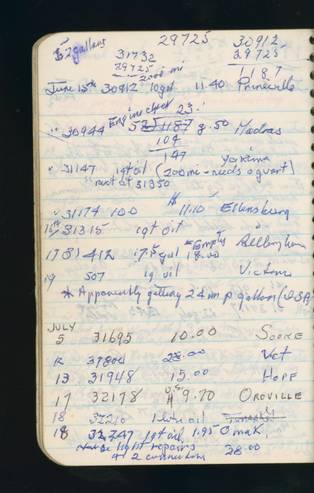 52 gallons 29725 30912
31732 29725
29725 1187
2000 mi
June 15th 30912 10gal 11.40 Prineville
Engine check 23.-
" 30944 52 1187 8.50 Madras
104
147
" 31147 1qt oil (200mi - needs a quart) Yakima
next at 31350
" 31174 10.0 11.10 Ellensburg
31315 1qt oil
17 31412 17.5 gal *Empty 18.00 Bellingham
19 507 1q oil Victoria
* Apparently getting 24 m p gallon (USA)
JULY
5 31695 10.00 SOOKE
12 31804 23.00 Vct
13 31948 15.00 HOPE
17 32178 9.70 OROVILLE
18 32210 1 litre oil
18 32247 1qt oil, 1.95 Omak
light repairs 28.00
at 2 connections